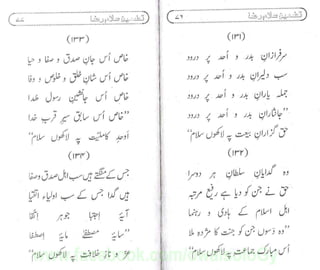 تضمین سلام رضا
۷۶
(۱۳۱)
سرفرازانِ بدر و اُحد پر درود
سب دلیرانِ بدر و اُحد پر درود
جملہ یارانِ بدر و اُحد پر درود
"جانثارانِ بدر و اُحد پر درود
حق گزارانِ بیعت پہ لاکھوں سلام"
(۱۳۲)
وہ گدایانِ سلطانِ ہر دوسرا
حق نے جن کو دیا ہے رفیع مرتبہ
اہل اسلام کے ہادی و رہنما
"وہ دسوں جن کو جنت کا مژدہ ملا
اُس مبارک جماعت پہ لاکھوں سلام"
تضمین سلام رضا
۷۷
(۱۳۳)
خاص اُس جانِ صدق و صفا و حیا
خاص اُس شانِ خلق و خلوص و وفا
خاص اُس جانشینِ رسولِ خدا
"خاص اُس سابقِ سیرِ قربِ خدا
اَوحدِ کاملیّت پہ لاکھوں سلام"
(۱۳۴)
جس کے منگتے ہیں سب اہل صدق و صفا
ہیں گدا جس کے سب اولیاء اتقیا
آیۂ اجتبا جوہرِ اتقا
"سایۂ مصطفےٰ مایۂ اصطفا
عز و نازِ خلافت پہ لاکھوں سلام"